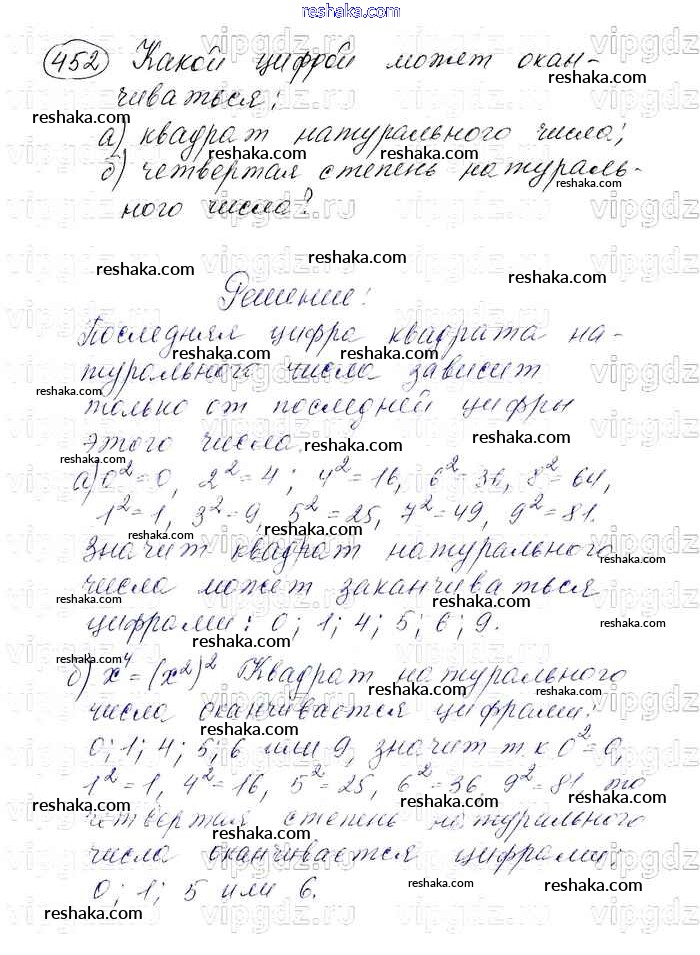 reshaka.com
452 Какой цифрой может окан-
чиваться:
а) квадрат натурального числа;
б) четвертая степень натураль-
ного числа?
Решение:
Последняя цифра квадрата на-
турального числа зависит
только от последней цифры
этого числа
а) 0²=0, 2²=4; 4²=16, 6²=36, 8²=64,
1²=1, 3²=9, 5²=25, 7²=49, 9²=81.
Значит квадрат натурального
числа может заканчиваться
цифрами: 0; 1; 4; 5; 6; 9.
б) x⁴=(x²)² Квадрат натурального
числа оканчивается цифрами:
0; 1; 4; 5; 6 или 9, значит т.к 0²=0,
1²=1, 4²=16, 5²=25, 6²=36, 9²=81, то
четвёртая степень натурального
числа оканчивается цифрами:
0; 1; 5 или 6.
reshaka.com
vipgdz.ru